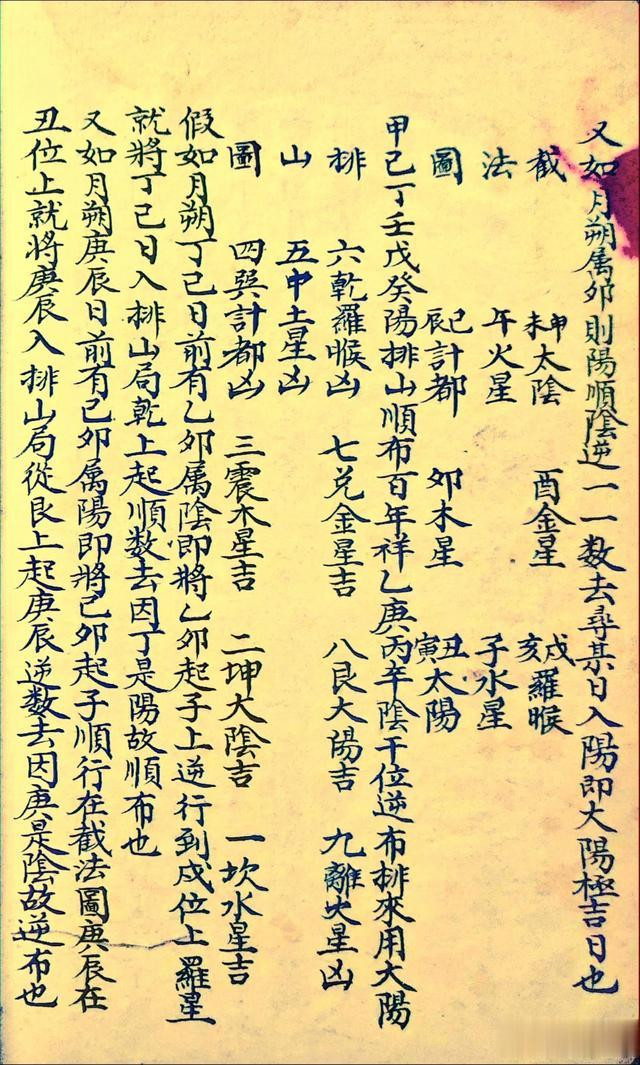 又如月朔属卯則陽順陰逆一一数去尋某日入陽即大陽極吉日也
截 申未太陰 酉金星 戌亥羅睺
法 午火星 子水星
圖 巳辰計都 卯木星 丑寅太陽
甲己丁壬戊癸陽排山順布百年祥乙庚丙辛陰干位逆布排來用大陽
排 六乾羅睺凶 七兑金星吉 八艮大陽吉 九離火星凶
山 五中土星凶
圖 四巽計都凶 三震木星吉 二坤大陰吉 一坎水星吉
假如月朔丁己日前有乙卯属陰即將乙卯起子上逆行到戌位上羅星
就將丁己日入排山局乾上起順数去因丁是陽故順布也
又如月朔庚辰日前有己卯属陽即將己卯起子順行在截法圖庚辰在
丑位上就將庚辰入排山局從艮上起庚辰逆数去因庚是陰故逆布也